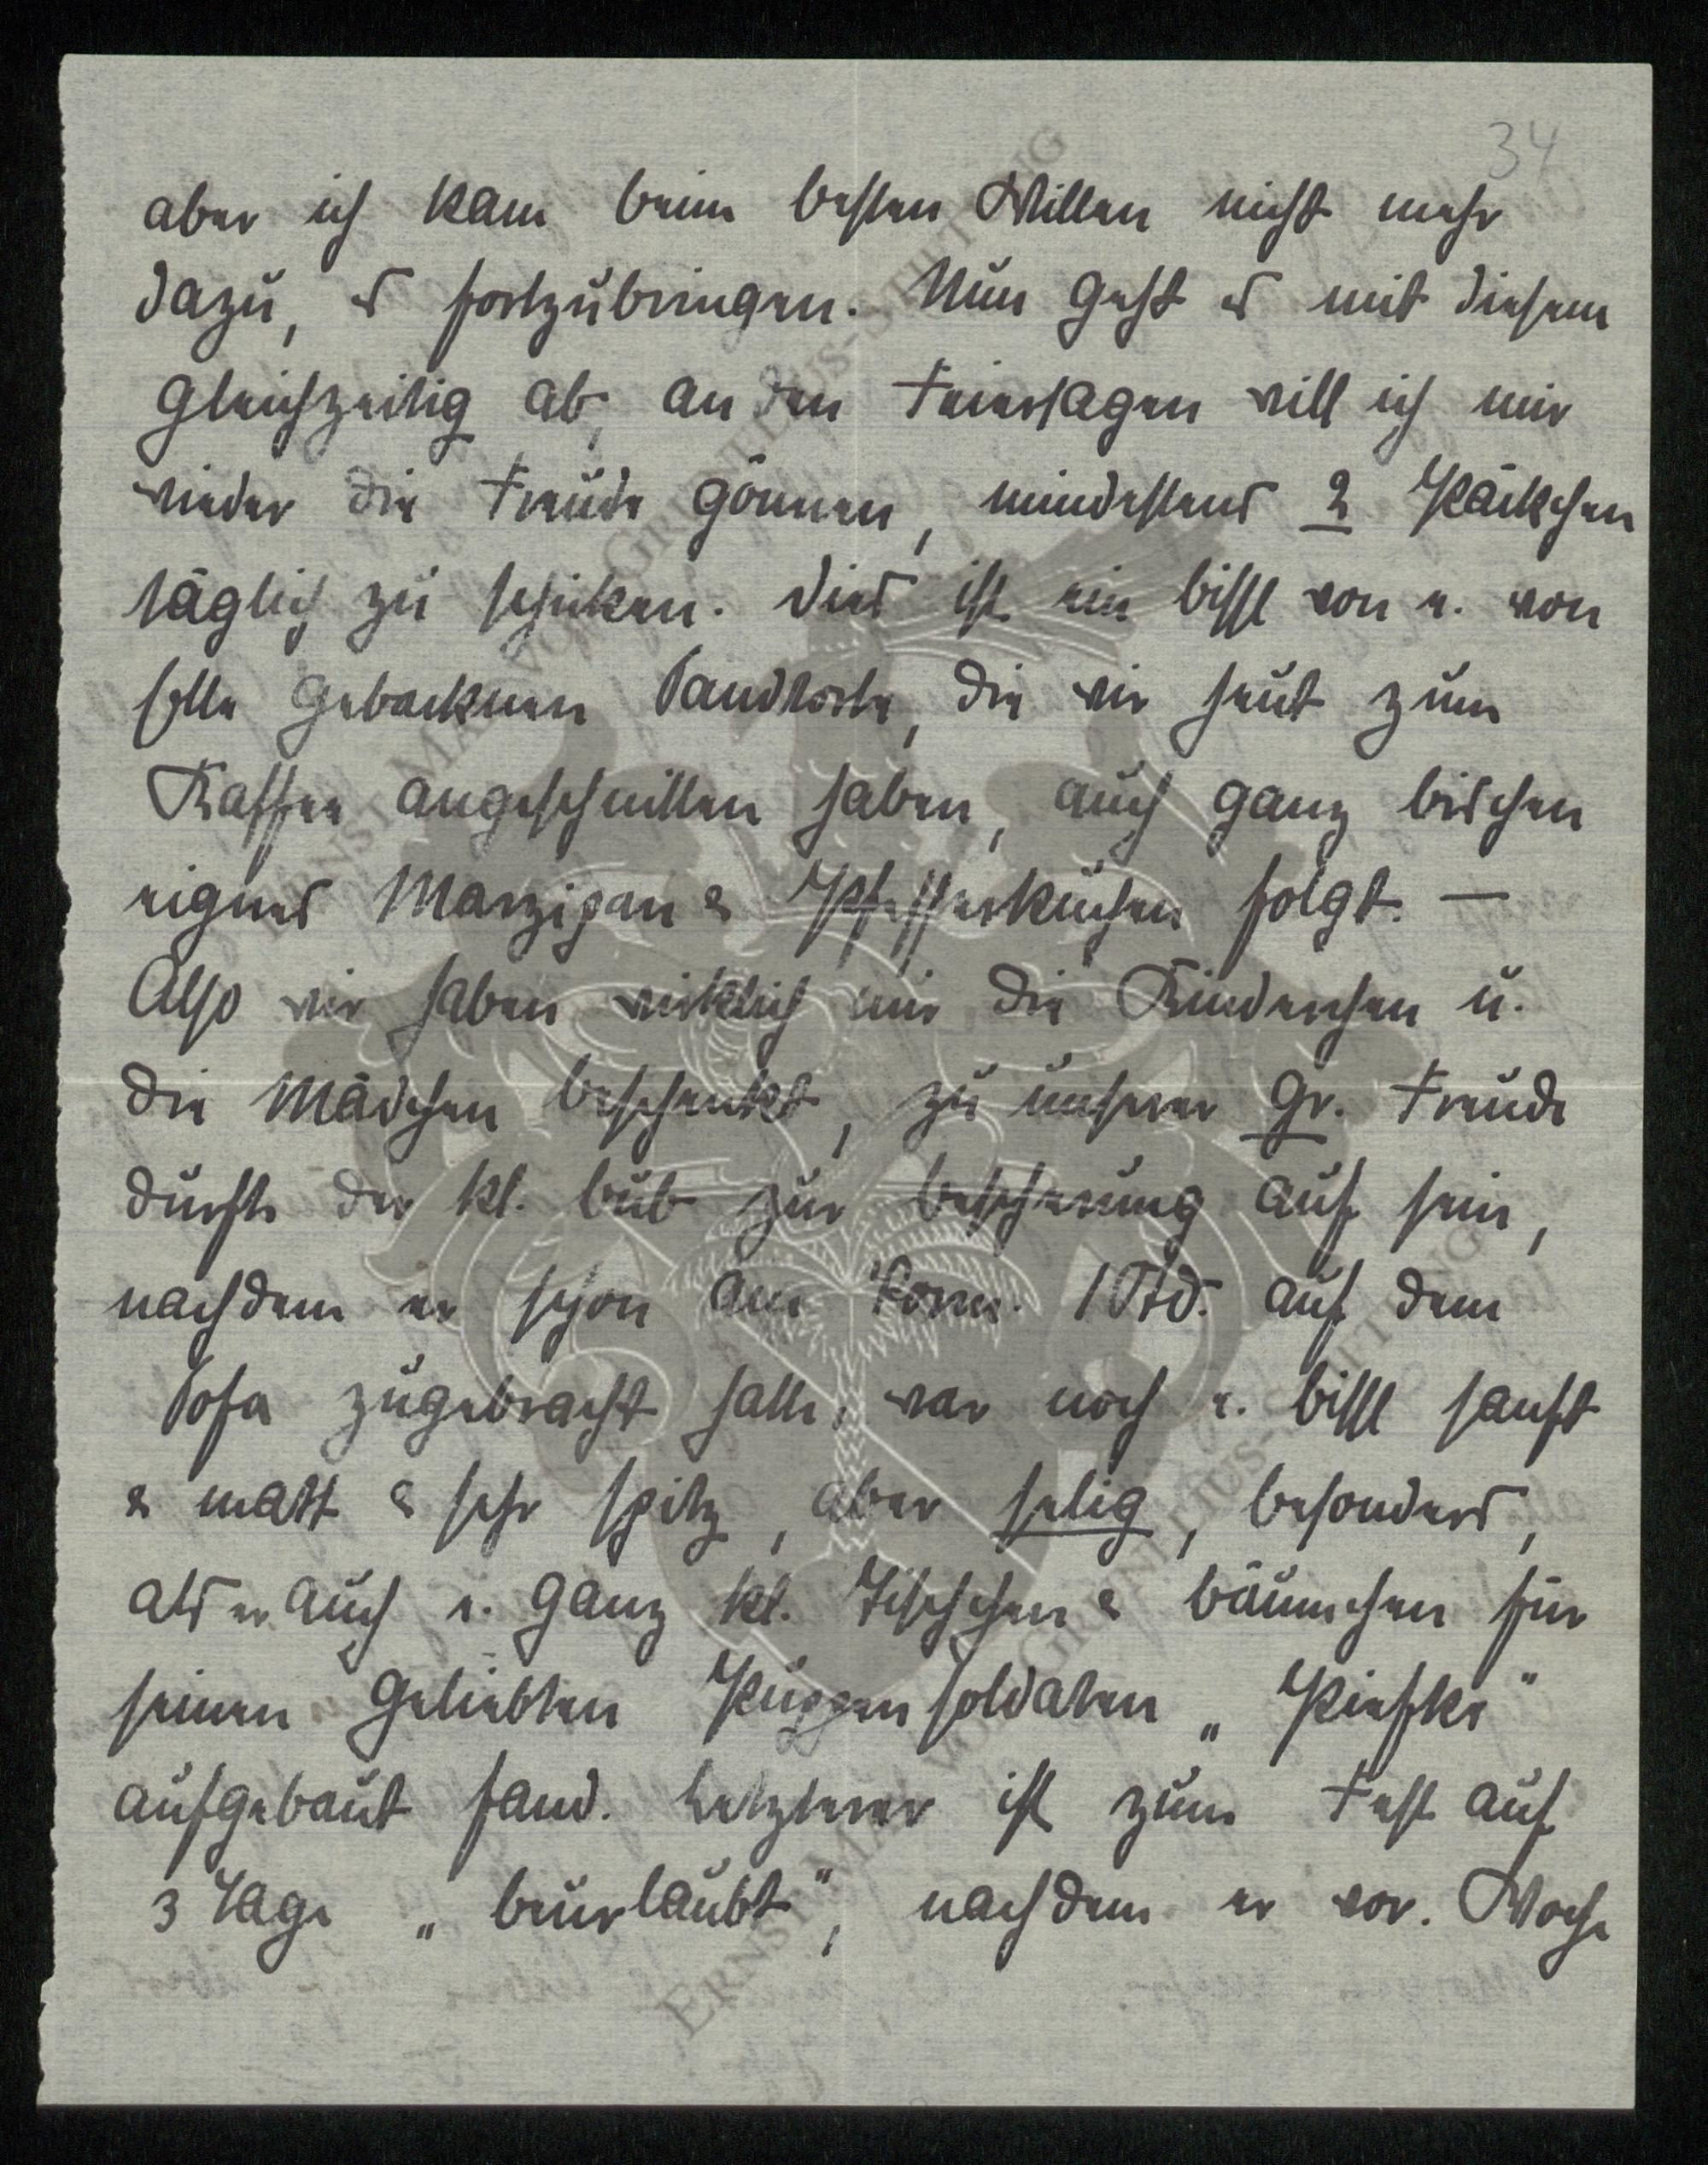 34
aber ich kam beim besten Willen nicht mehr
dazu, es fortzubringen. Nun geht es mit diesem
gleichzeitig ab, an den Feiertagen will ich mir
wieder die Freude gönnen, mindestens 2 Päckchen
täglich zu schicken. Dies ist ein bissl von e. von
Elle gebacknen Sandtorte, die wir heut zum
Kaffee angeschnitten haben, auch ganz bischen
eignes Marzipan & Pfefferkuchen folgt. —
Also wir haben wirklich nur die Kinderchen u.
die Mädchen beschenkt, zu unserer gr. Freude
durfte der kl. Bub zur Bescherung auf sein,
nachdem er schon am Vorm. 1 Std. auf dem
Sofa zugebracht hatte, war noch e. bissl sanft
& matt & sehr spitz, aber selig, besonders,
als er auch e. ganz kl. Tischchen & Bäumchen für
seinen geliebten Puppensoldaten „Piefke"
aufgebaut fand. Letzterer ist zum Fest auf
3 Tage „beurlaubt", nachdem er vor. Woche
ERNST MAX VON GRUNELIUS-STIFTUNG
ERNST MAX VON GRUNELIUS-STIFTUNG